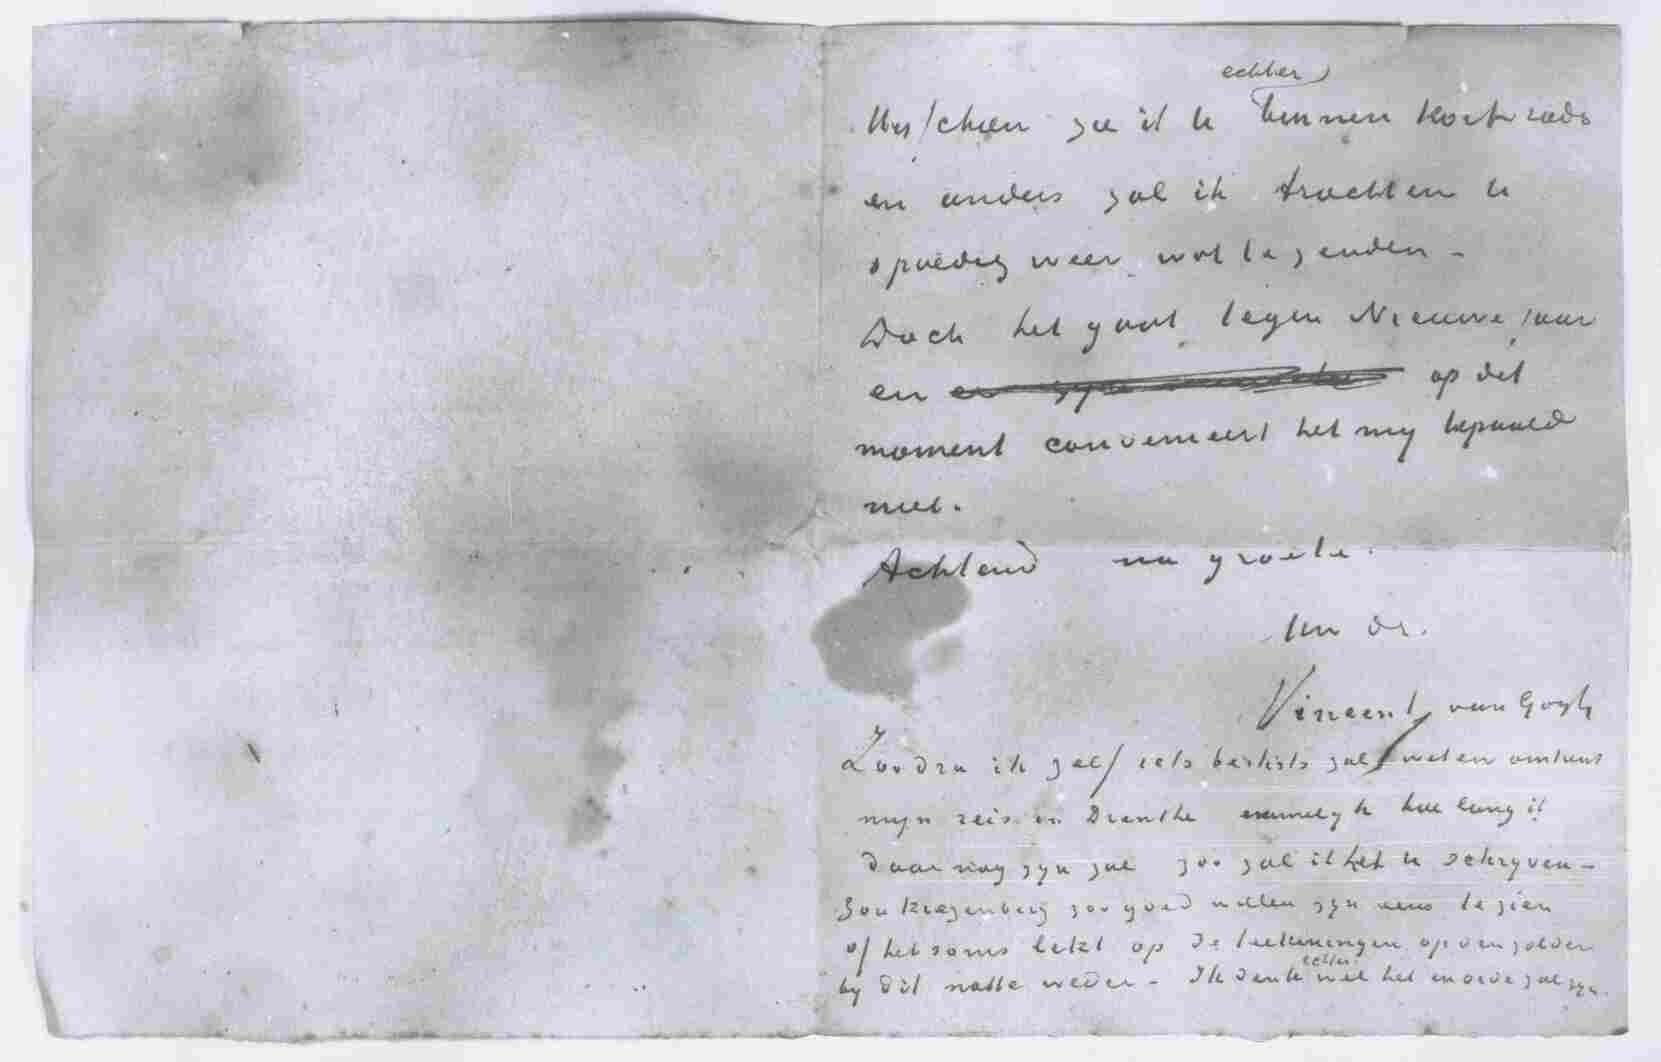 echter
Misschien zie ik U binnen kort reeds
en anders zal ik trachten U
spoedig weer wat te zenden –
Doch het gaat tegen Nieuwejaar
en op dit
moment convenieert het mij bepaald
niet.
Achtend na groete.
Uw dr.
Vincent van Gogh
Zoodra ik zelf iets beslists zal weten omtrent
mijn reis in Drenthe namelijk hoe lang ik
daar nog zijn zal zoo zal ik het U schrijven –
Zou Krazenberg zoo goed willen zijn eens te zien
of het soms lekt op de teekeningen op den zolder
echter
bij dit natte weder – Ik denk wel het in orde zal zijn.